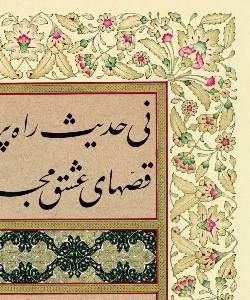 نی حدیث راه پر
قصهای عشق مجـ